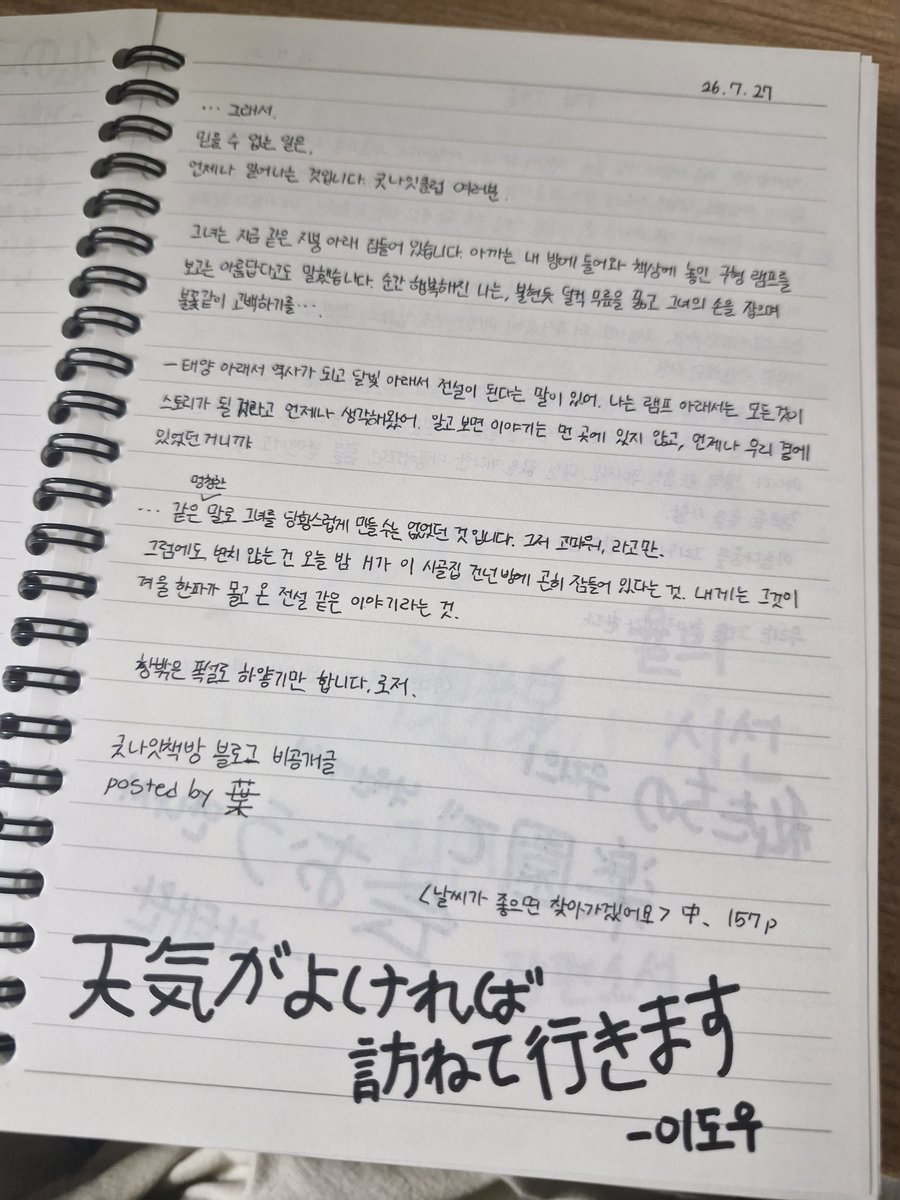 26.7.27
… 그래서.
믿을 수 없는 일은,
언제나 일어나는 것입니다. 굿나잇클럽 여러분.
그녀는 지금 같은 지붕 아래 잠들어 있습니다. 아까는 내 방에 들어와 책상에 놓인 구형 램프를
보고는 아름답다고도 말했습니다. 순간 행복해진 나는, 보현듯 덜컥 무릎을 꿇고 그녀의 손을 잡으며
불꽃같이 고백하기를…
- 태양 아래서 역사가 되고 달빛 아래서 전설이 된다는 말이 있어. 나는 램프 아래서는 모든 것이
스토리가 될 거라고 언제나 생각해왔어. 알고 보면 이야기는 먼 곳에 있지 않고, 언제나 우리 곁에
있었던 거니까
멍청한
… 같은 말로 그녀를 당황스럽게 만들 수는 없었던 것입니다. 그저 고마워, 라고만.
그럼에도 변치 않는 건 오늘 밤 H가 이 시골집 건넌방에 곤히 잠들어 있다는 것. 내게는 그것이
겨울 한파가 몰고 온 전설 같은 이야기라는 것.
창밖은 폭설로 하얗기만 합니다, 로저.
굿나잇책방 블로그 비공개글
posted by 葉
<날씨가 좋으면 찾아가겠어요> 中、 157p
天気がよければ
訪ねて行きます
-이도우